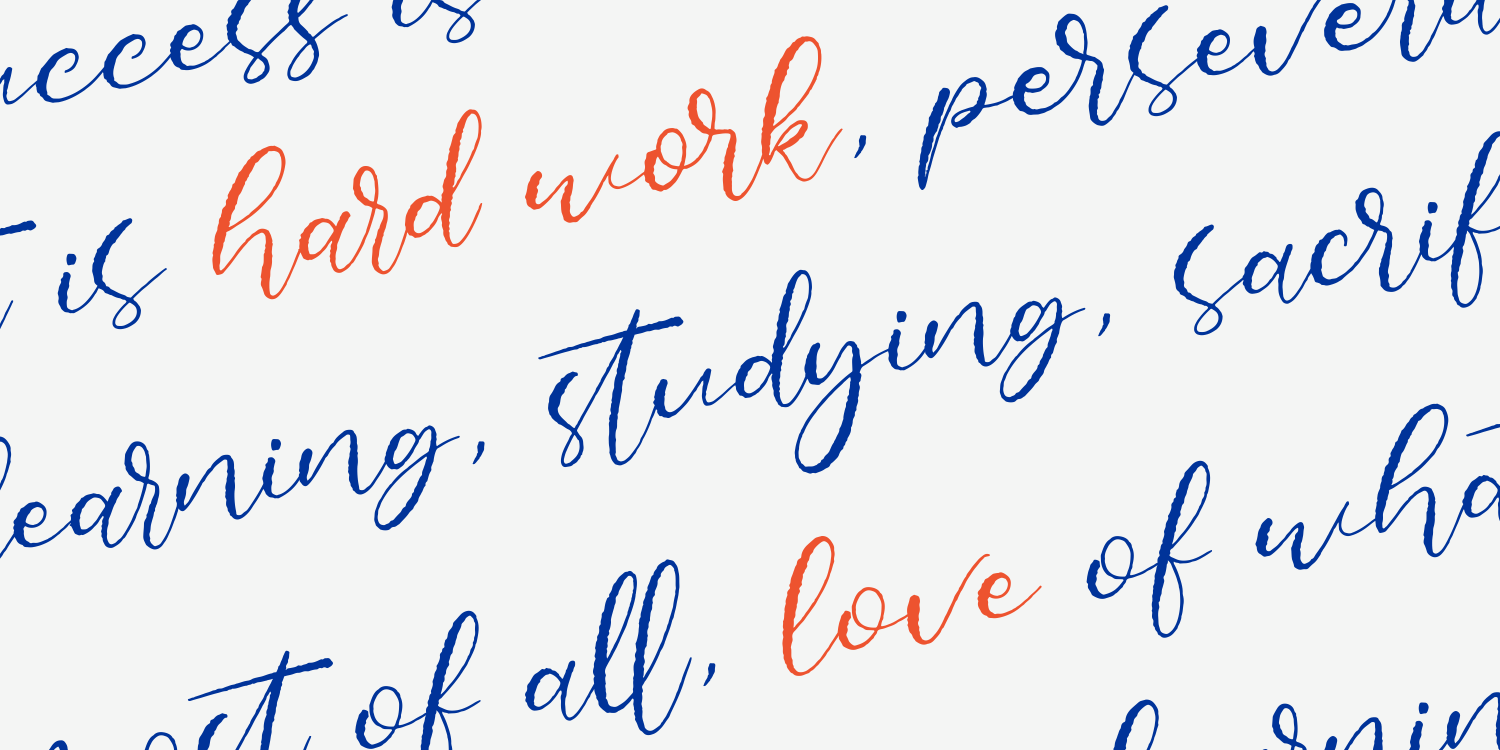 uccess is
t is hard work, persevera
learning, studying, sacrif
ost of all, love of what
learnin